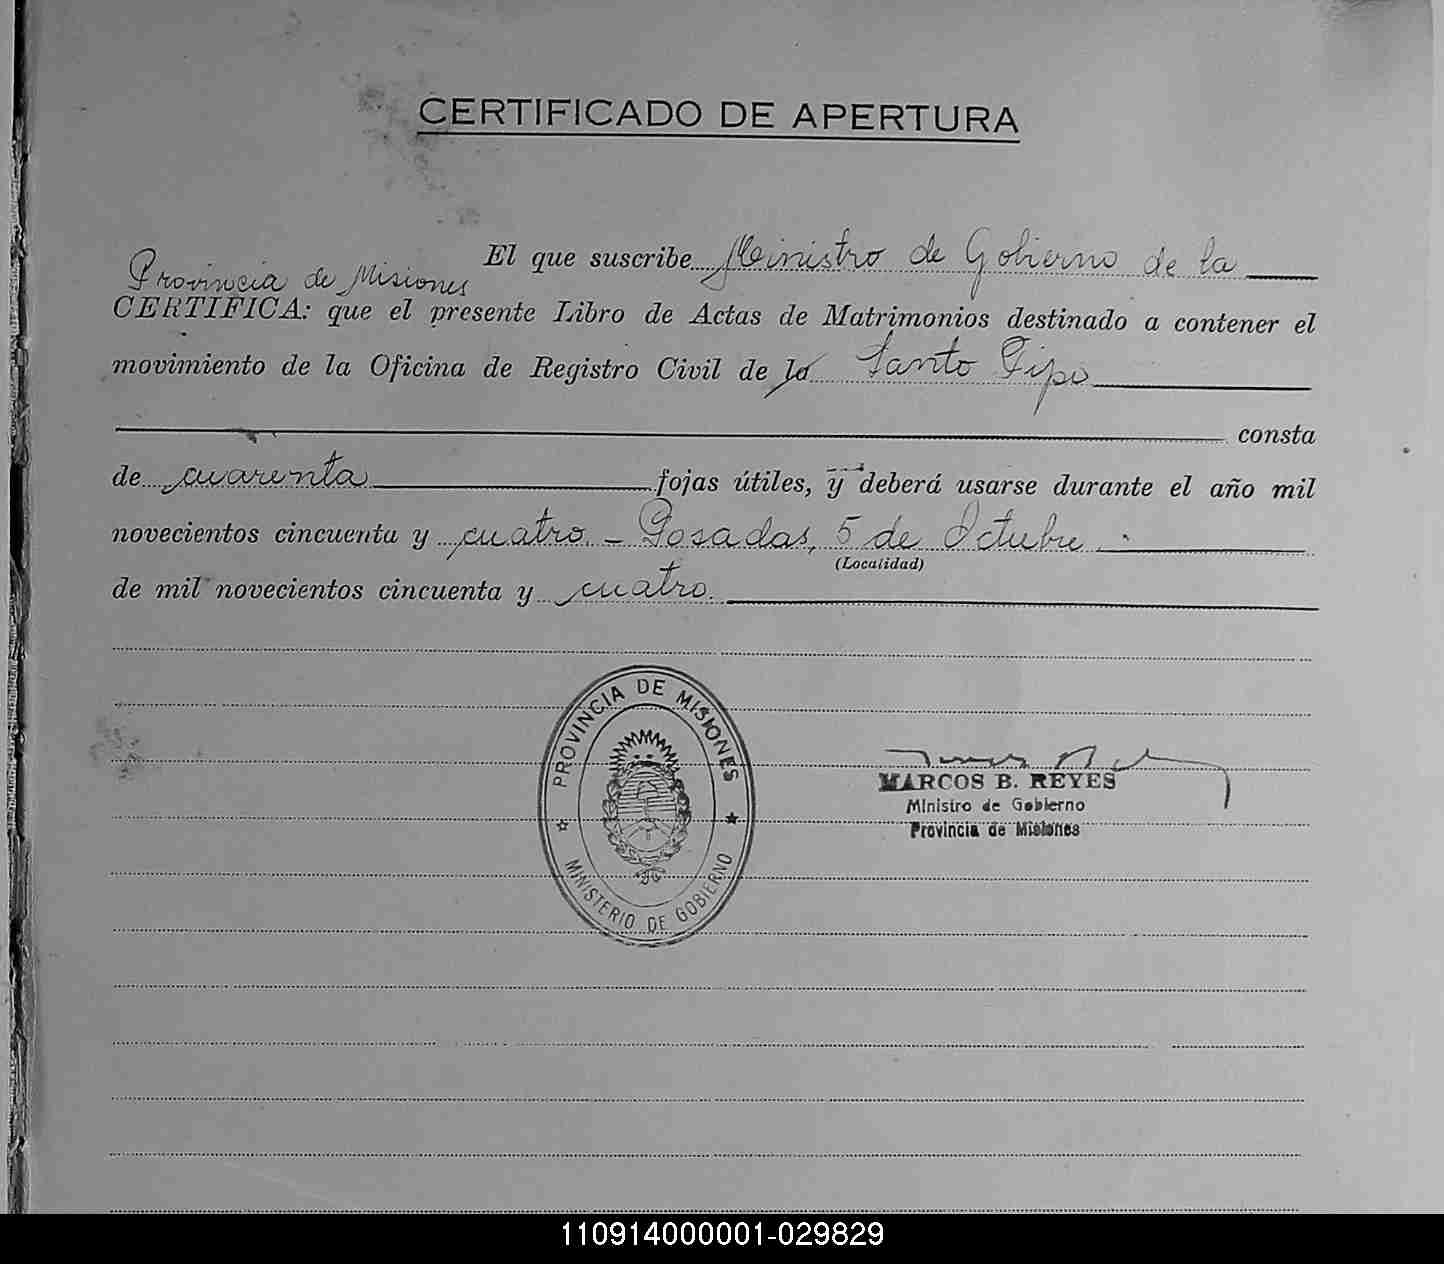 CERTIFICADO DE APERTURA
El que suscribe Ministro de Gobierno de la
Provincia de Misiones
CERTIFICA: que el presente Libro de Actas de Matrimonios destinado a contener el
movimiento de la Oficina de Registro Civil de la Santo Pipo
consta
de cuarenta fojas útiles, y deberá usarse durante el año mil
novecientos cincuenta y cuatro. - Posadas, 5 de Octubre
(Localidad)
de mil novecientos cincuenta y cuatro.
PROVINCIA DE MISIONES
MINISTERIO DE GOBIERNO
MARCOS B. REYES
Ministro de Gobierno
Provincia de Misiones
110914000001-029829